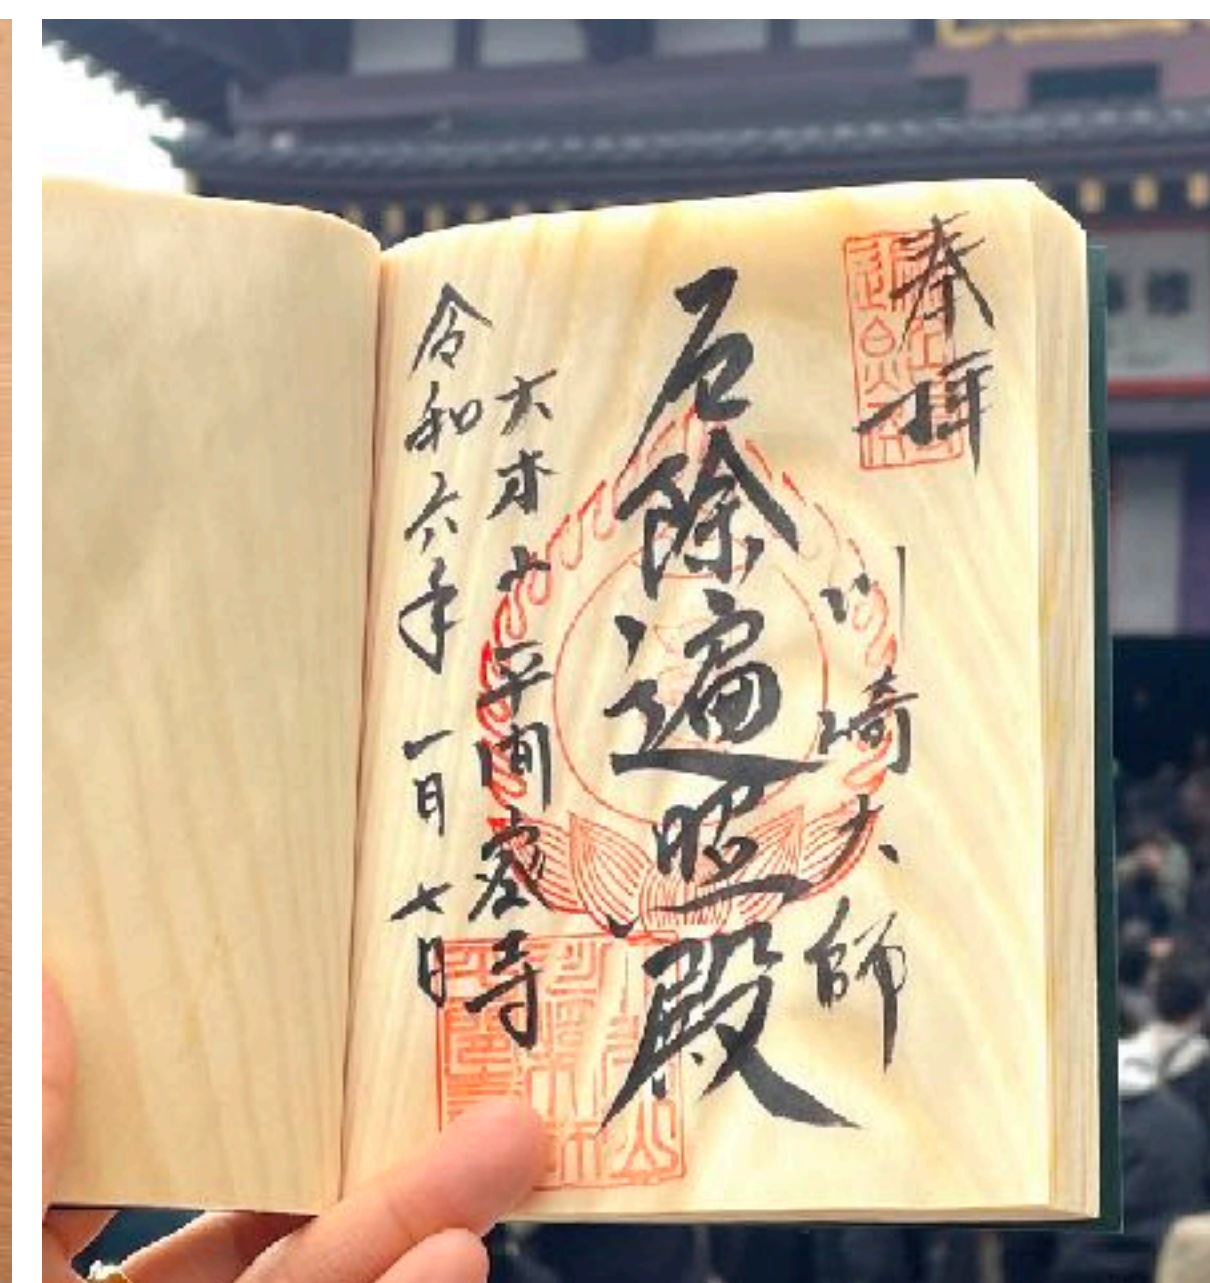 奉拝
川崎大師
厄除遍照殿
大本山平間寺
令和六年一月七日